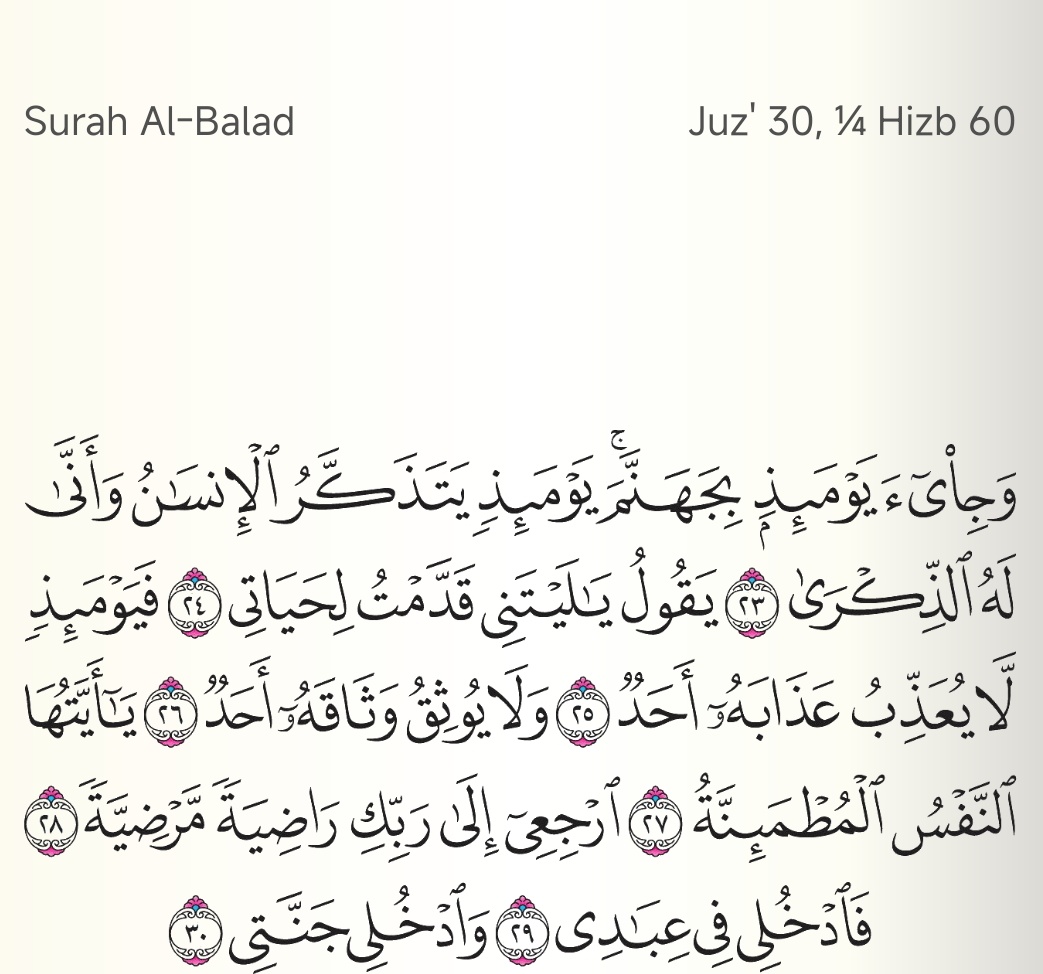 Surah Al-Balad
Juz' 30, ¼ Hizb 60
وَجِا۟ىٓءَ يَوْمَئِذِۭ بِجَهَنَّمَ ۚ يَوْمَئِذٍ يَتَذَكَّرُ ٱلْإِنسَـٰنُ وَأَنَّىٰ
لَهُ ٱلذِّكْرَىٰ ٢٣ يَقُولُ يَـٰلَيْتَنِى قَدَّمْتُ لِحَيَاتِى ٢٤ فَيَوْمَئِذٍ
لَّا يُعَذِّبُ عَذَابَهُۥٓ أَحَدٌ ٢٥ وَلَا يُوثِقُ وَثَاقَهُۥٓ أَحَدٌ ٢٦ يَـٰٓأَيَّتُهَا
ٱلنَّفْسُ ٱلْمُطْمَئِنَّةُ ٢٧ ٱرْجِعِىٓ إِلَىٰ رَبِّكِ رَاضِيَةً مَّرْضِيَّةً ٢٨
فَٱدْخُلِى فِى عِبَـٰدِى ٢٩ وَٱدْخُلِى جَنَّتِى ٣٠